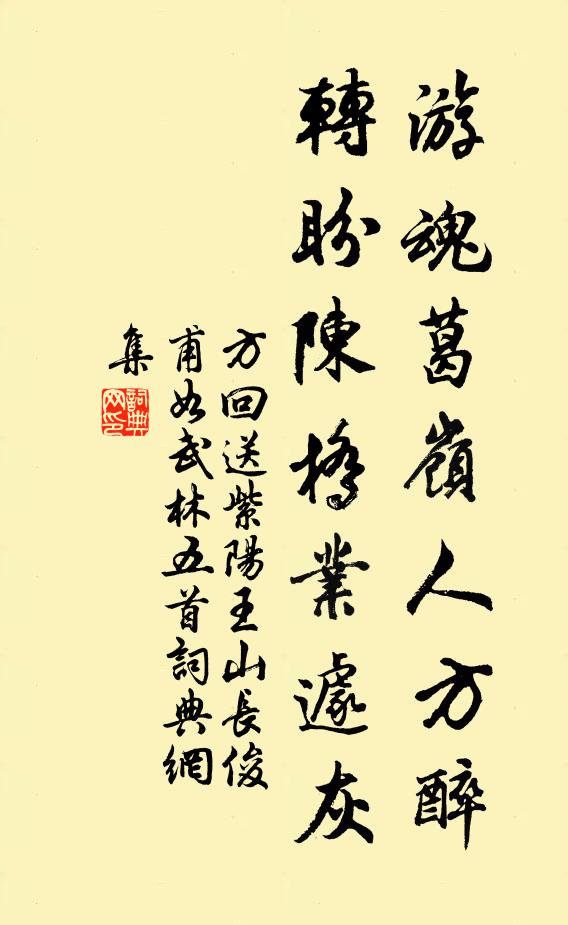 游魂葛嶺人方醉
轉盼陳橋業遽灰
方回送紫陽王山長俊
甫如武林五首詞典網
集
詞典
网印